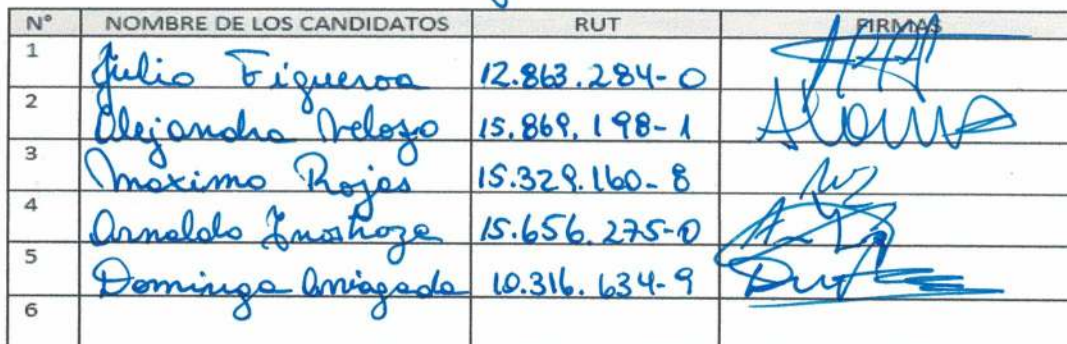 N° NOMBRE DE LOS CANDIDATOS RUT FIRMAS
1 Julio Figueroa 12.863.284-0
2 Alejandra Veloso 15.869.198-1
3 Maximo Rojas 15.329.160-8
4 Arnaldo Inostroza 15.656.275-0
5 Dominga Arriagada 10.316.634-9
6